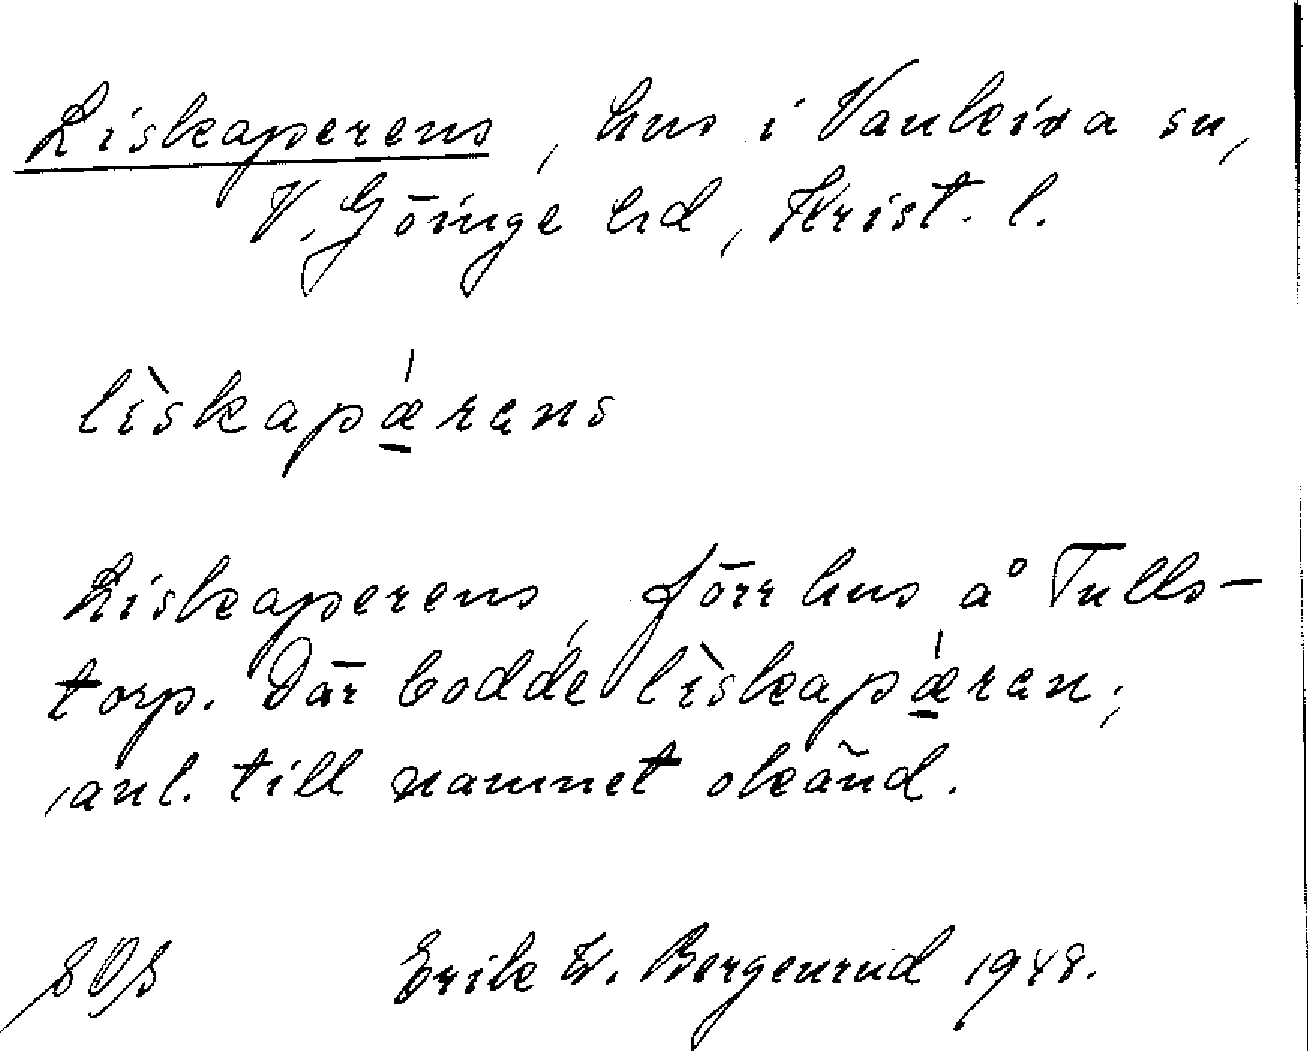 Liskaperens, hus i Vankiva sn,
V. Göinge hd, Krist. l.
lìskapǽ̱rəns
Liskaperens, förr hus å Tulls-
torp. Där bodde lìskapǽ̱rən;
anl. till namnet okänd.
SOS Erik W. Bergenrud 1948.